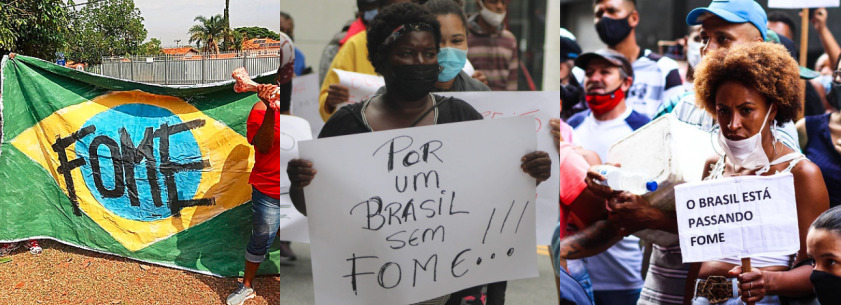 FOME
POR
UM
BRASIL
SEM
FOME...!!!
O BRASIL ESTÁ
PASSANDO
FOME